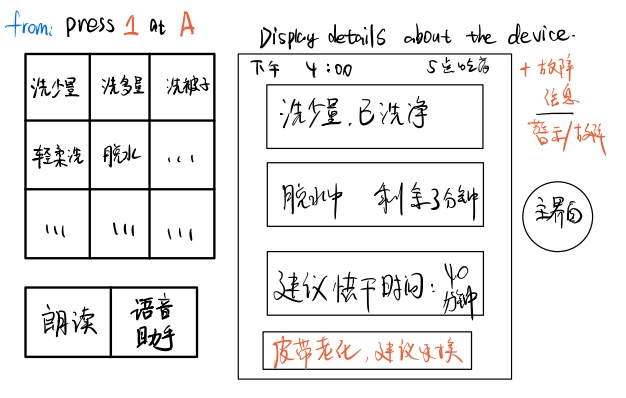 from: press 1 at A
洗少量 洗多量 洗被子
轻柔洗 脱水 ...
... ... ...
朗读 语音助手
Display details about the device.
下午 4:00
洗少量,已洗净
脱水中 剩余3分钟
建议烘干时间:40分钟
皮带老化,建议更换
+故障
信息
警示/故障
主界面